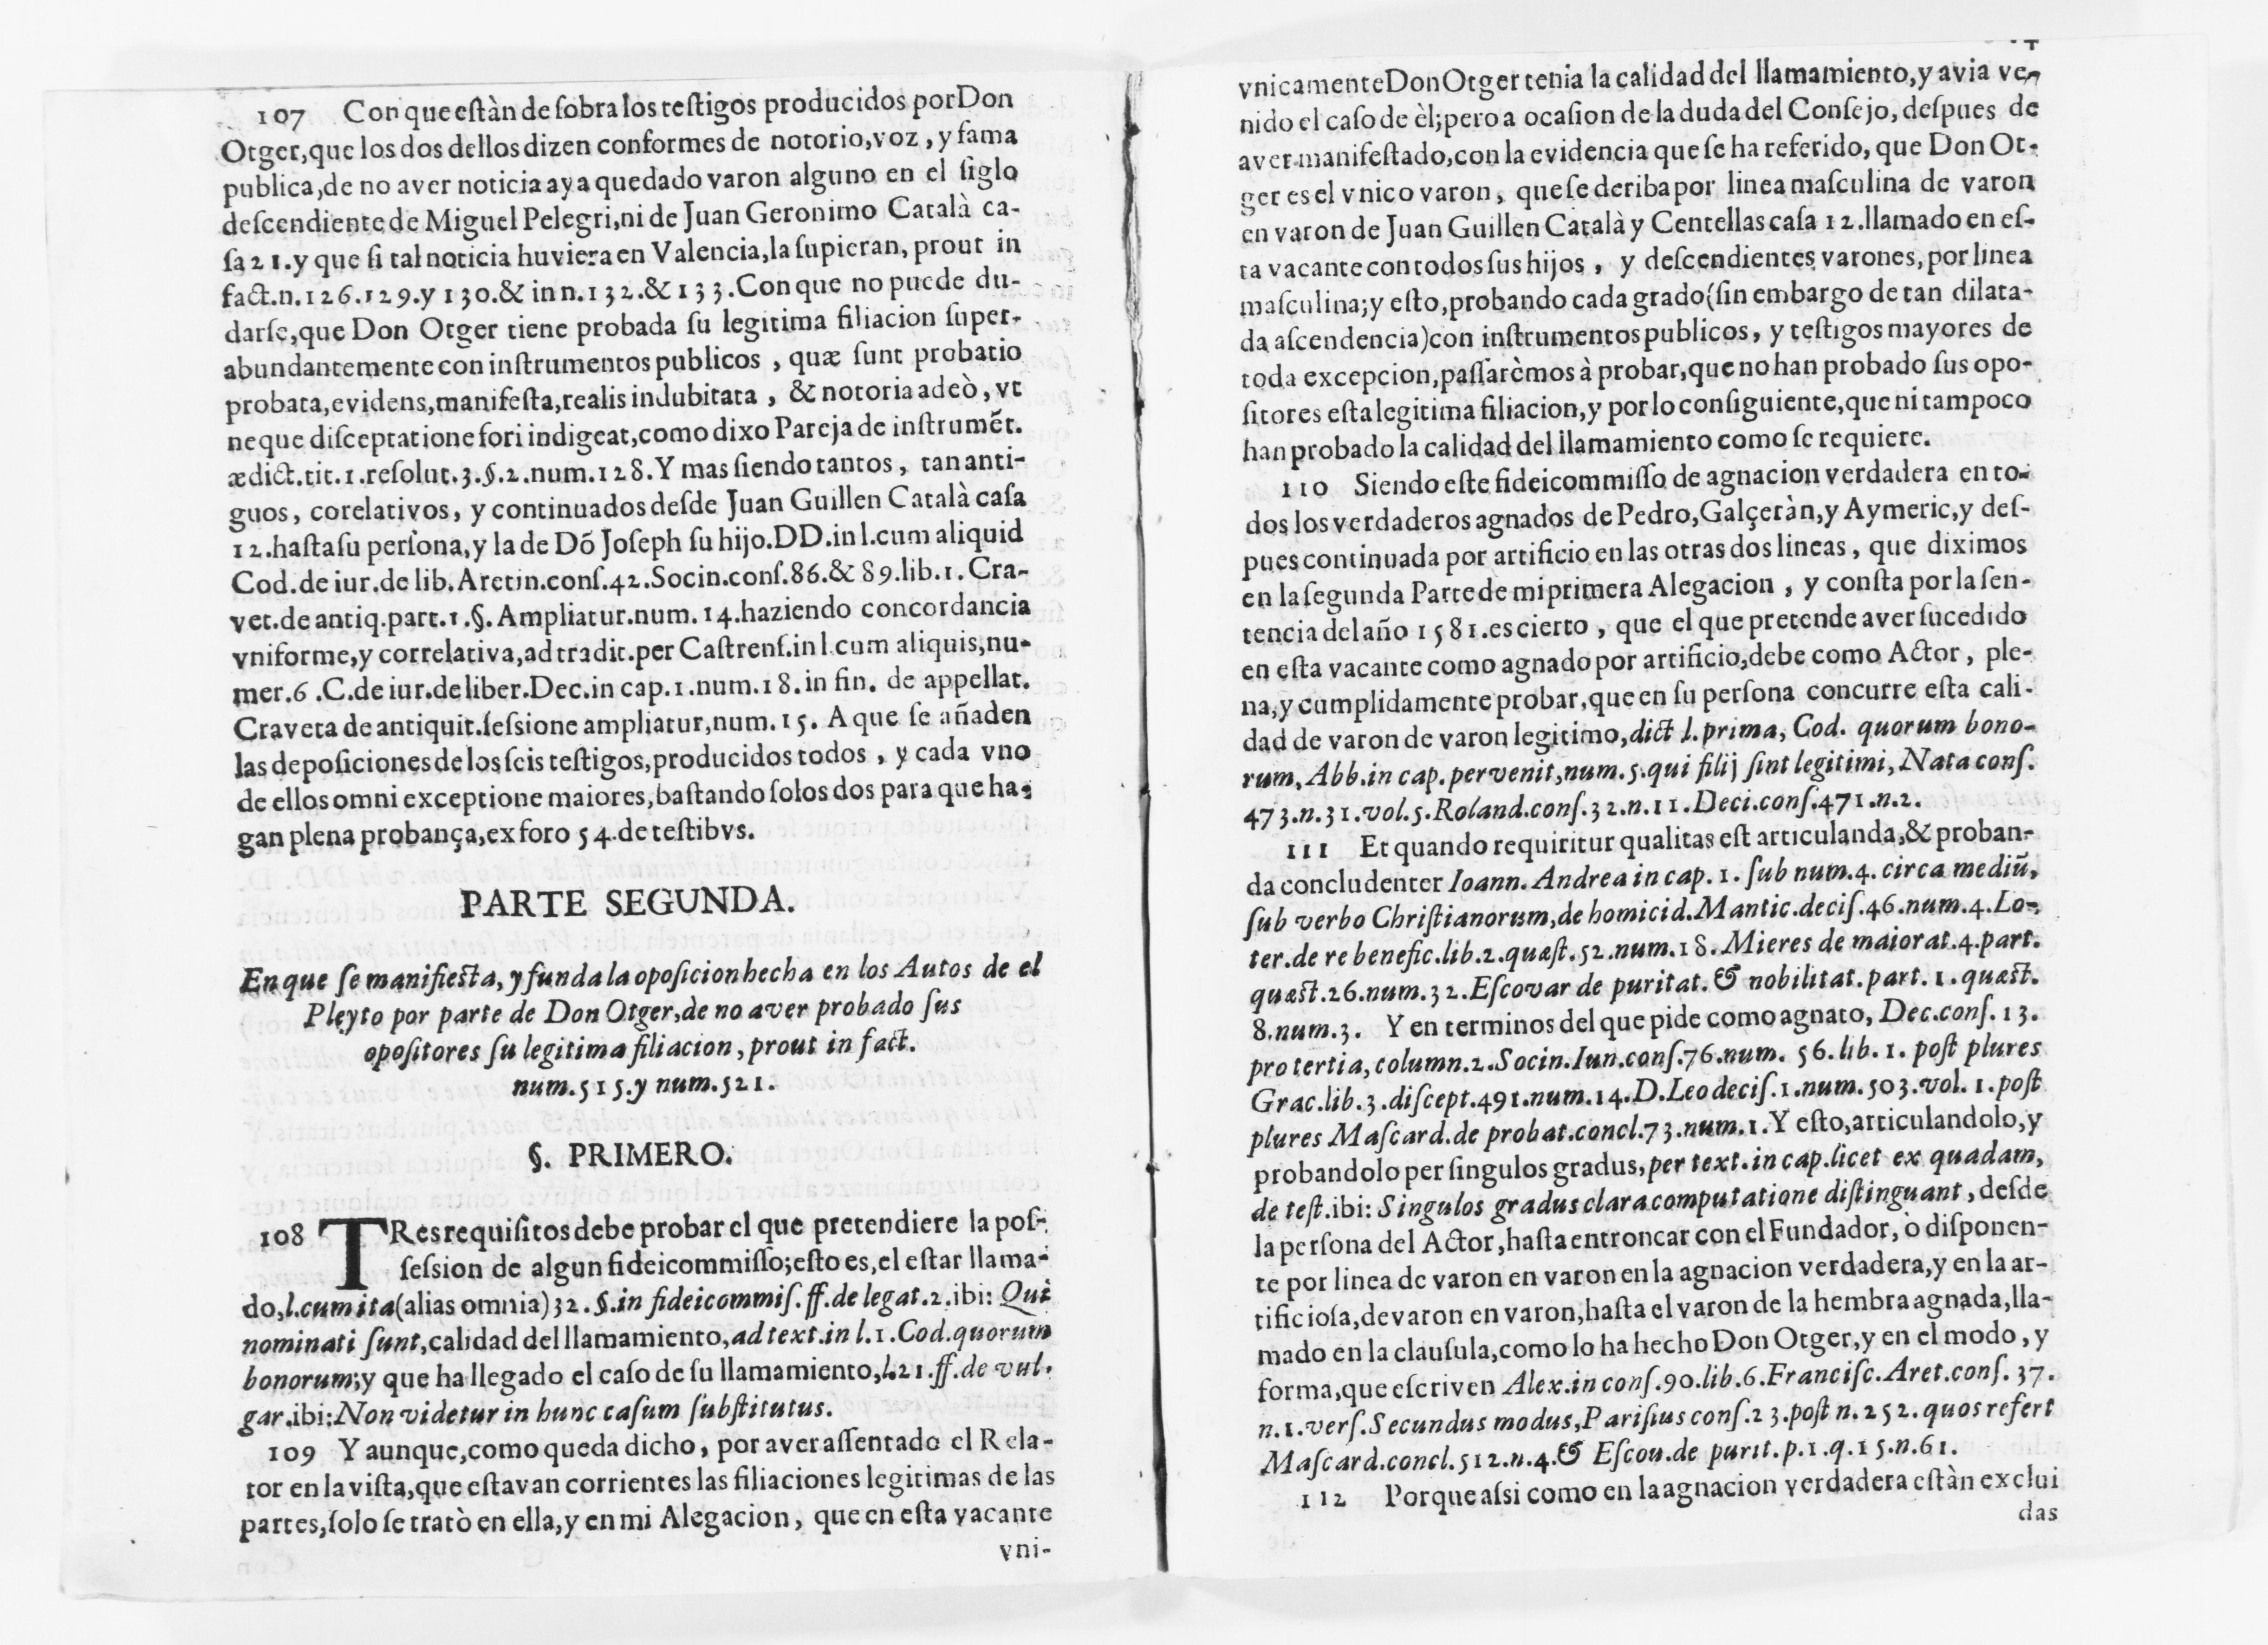 107 Con que estàn de sobra los testigos producidos por Don
Otger, que los dos dellos dizen conformes de notorio, voz, y fama
publica, de no aver noticia aya quedado varon alguno en el siglo
descendiente de Miguel Pelegri, ni de Juan Geronimo Català ca-
sa 21. y que si tal noticia huviera en Valencia, la supieran, prout in
fact. n. 126. 129. y 130. & in n. 132. & 133. Con que no puede du-
darse, que Don Otger tiene probada su legitima filiacion super-
abundantemente con instrumentos publicos, quæ sunt probatio
probata, evidens, manifesta, realis indubitata, & notoria adeò, vt
neque disceptatione fori indigeat, como dixo Pareja de instrumẽt.
ædict. tit. 1. resolut. 3. §. 2. num. 128. Y mas siendo tantos, tan anti-
guos, corelativos, y continuados desde Juan Guillen Català casa
12. hasta su persona, y la de Dõ Joseph su hijo. DD. in l. cum aliquid
Cod. de iur. de lib. Aretin. cons. 42. Socin. cons. 86. & 89. lib. 1. Cra-
vet. de antiq. part. 1. §. Ampliatur. num. 14. haziendo concordancia
vniforme, y correlativa, ad tradit. per Castrens. in l. cum aliquis, nu-
mer. 6. C. de iur. de liber. Dec. in cap. 1. num. 18. in fin. de appellat.
Craveta de antiquit. sessione ampliatur, num. 15. A que se añaden
las deposiciones de los seis testigos, producidos todos, y cada vno
de ellos omni exceptione maiores, bastando solos dos para que ha-
gan plena probança, ex foro 54. de testibvs.
PARTE SEGUNDA.
En que se manifiesta, y funda la oposicion hecha en los Autos de el
Pleyto por parte de Don Otger, de no aver probado sus
opositores su legitima filiacion, prout in fact.
num. 515. y num. 521.
§. PRIMERO.
108 TRes requisitos debe probar el que pretendiere la pos-
session de algun fideicommisso; esto es, el estar llama-
do, l. cum ita (alias omnia) 32. §. in fideicommis. ff. de legat. 2. ibi: Qui
nominati sunt, calidad del llamamiento, ad text. in l. 1. Cod. quorum
bonorum; y que ha llegado el caso de su llamamiento, l. 21. ff. de vul.
gar. ibi: Non videtur in hunc casum substitutus.
109 Y aunque, como queda dicho, por aver assentado el Rela-
tor en la vista, que estavan corrientes las filiaciones legitimas de las
partes, solo se tratò en ella, y en mi Alegacion, que en esta vacante
vni-
vnicamente Don Otger tenia la calidad del llamamiento, y avia ve-
nido el caso de èl; pero a ocasion de la duda del Consejo, despues de
aver manifestado, con la evidencia que se ha referido, que Don Ot-
ger es el vnico varon, que se deriba por linea masculina de varon
en varon de Juan Guillen Català y Centellas casa 12. llamado en es-
ta vacante con todos sus hijos, y descendientes varones, por linea
masculina; y esto, probando cada grado (sin embargo de tan dilata-
da ascendencia) con instrumentos publicos, y testigos mayores de
toda excepcion, passarèmos à probar, que no han probado sus opo-
sitores esta legitima filiacion, y por lo consiguiente, que ni tampoco
han probado la calidad del llamamiento como se requiere.
110 Siendo este fideicommisso de agnacion verdadera en to-
dos los verdaderos agnados de Pedro, Galçeràn, y Aymeric, y des-
pues continuada por artificio en las otras dos lineas, que diximos
en la segunda Parte de mi primera Alegacion, y consta por la sen-
tencia del año 1581. es cierto, que el que pretende aver sucedido
en esta vacante como agnado por artificio, debe como Actor, ple-
na, y cumplidamente probar, que en su persona concurre esta cali-
dad de varon de varon legitimo, dict l. prima, Cod. quorum bono-
rum, Abb. in cap. pervenit, num. 5. qui filij sint legitimi, Nata cons.
473. n. 31. vol. 5. Roland. cons. 32. n. 11. Deci. cons. 471. n. 2.
111 Et quando requiritur qualitas est articulanda, & proban-
da concludenter Ioann. Andrea in cap. 1. sub num. 4. circa mediũ,
sub verbo Christianorum, de homicid. Mantic. decis. 46. num. 4. Lo-
ter. de re benefic. lib. 2. quæst. 52. num. 18. Mieres de maiorat. 4. part.
quæst. 26. num. 32. Escovar de puritat. & nobilitat. part. 1. quæst.
8. num. 3. Y en terminos del que pide como agnato, Dec. cons. 13.
pro tertia, column. 2. Socin. Iun. cons. 76. num. 56. lib. 1. post plures
Grac. lib. 3. discept. 491. num. 14. D. Leo decis. 1. num. 503. vol. 1. post
plures Mascard. de probat. concl. 73. num. 1. Y esto, articulandolo, y
probandolo per singulos gradus, per text. in cap. licet ex quadam,
de test. ibi: Singulos gradus clara computatione distinguant, desde
la persona del Actor, hasta entroncar con el Fundador, ò disponen-
te por linea de varon en varon en la agnacion verdadera, y en la ar-
tificiosa, de varon en varon, hasta el varon de la hembra agnada, lla-
mado en la clausula, como lo ha hecho Don Otger, y en el modo, y
forma, que escriven Alex. in cons. 90. lib. 6. Francisc. Aret. cons. 37.
n. 1. vers. Secundus modus, Parisius cons. 23. post n. 252. quos refert
Mascard. concl. 512. n. 4. & Escou. de purit. p. 1. q. 15. n. 61.
112 Porque assi como en la agnacion verdadera estàn exclui
das